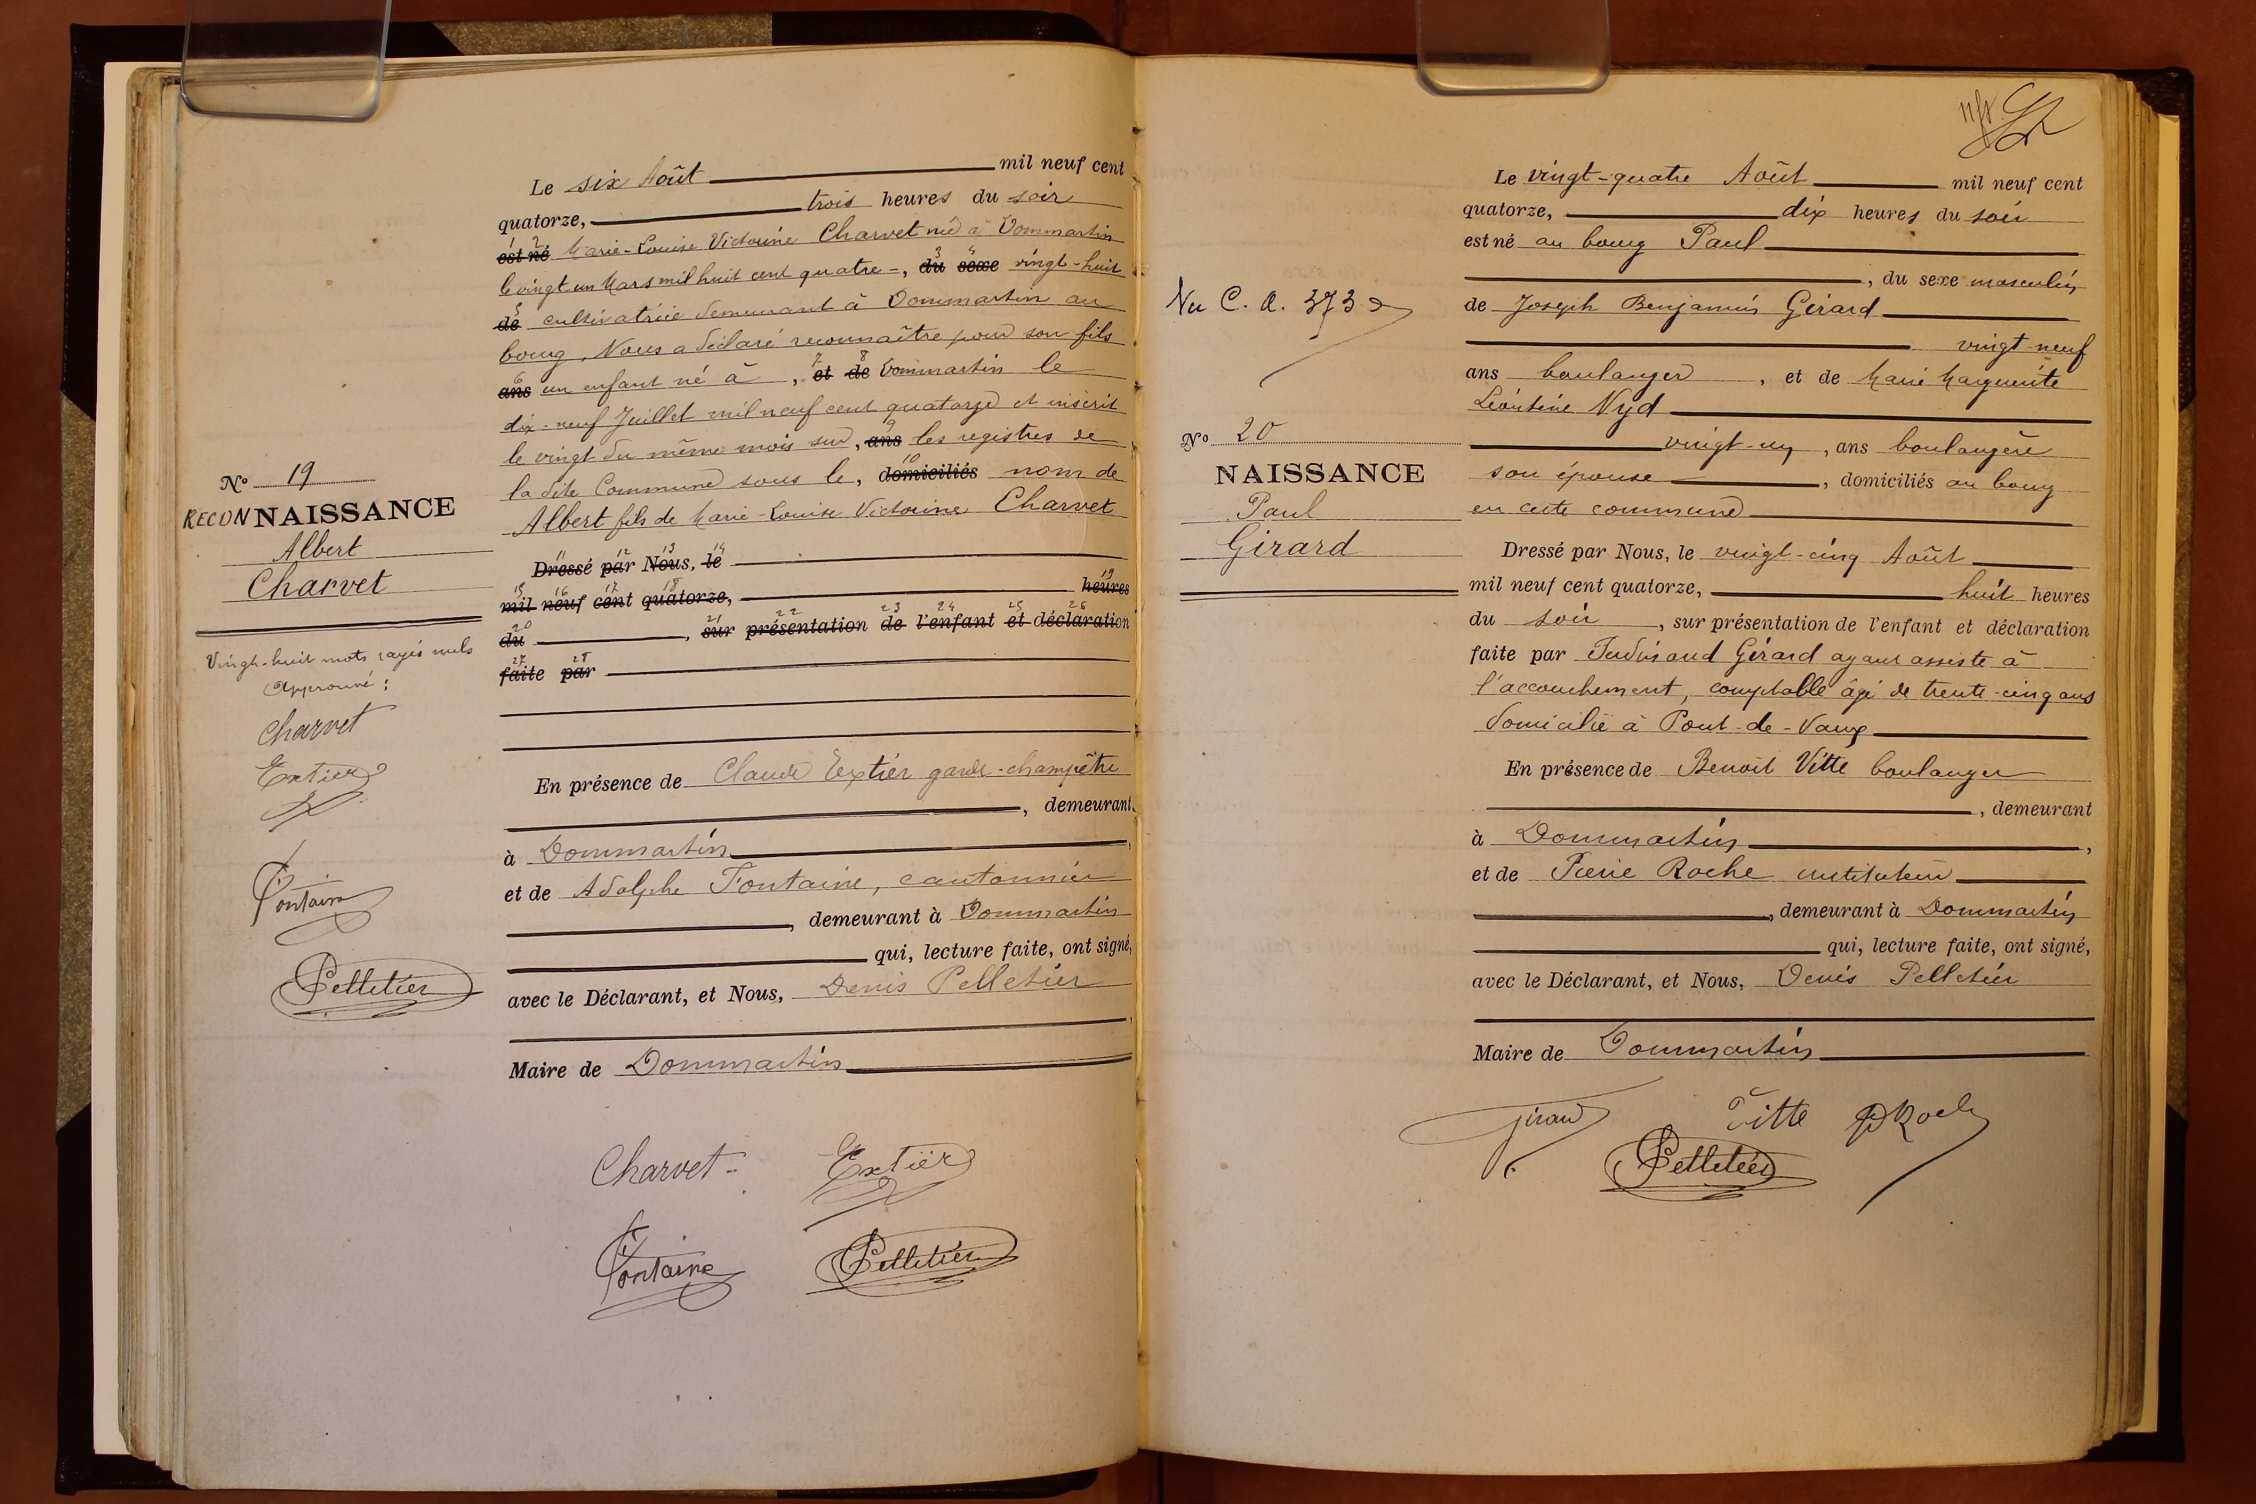 Le six Août mil neuf cent
quatorze, trois heures du soir
est né Marie-Louise Victorine Charvet née à Dommartin
le vingt un Mars mil huit cent quatre-, du sexe vingt-huit
de cultivatrice demeurant à Dommartin au
bourg, Nous a déclaré reconnaître pour son fils
ans un enfant né à , et de Dommartin le
dix-neuf Juillet mil neuf cent quatorze et inscrit
le vingt du même mois sur, ans les registres de
la dite Commune sous le, domiciliés nom de
Albert fils de Marie-Louise Victorine Charvet
Dressé par Nous, le
mil neuf cent quatorze, heures
du , sur présentation de l'enfant et déclaration
faite par
En présence de Claude Extier garde-champêtre
, demeurant
à Dommartin ,
et de Adolphe Fontaine, cantonnier
, demeurant à Dommartin
qui, lecture faite, ont signé,
avec le Déclarant, et Nous, Denis Pelletier
,
Maire de Dommartin
Charvet Extier
Fontaine Pelletier
No 19
RECONNAISSANCE
Albert
Charvet
Vingt-huit mots rayés nuls
Approuvé :
Charvet
Extier
Fontaine
Pelletier
Le vingt-quatre Août mil neuf cent
quatorze, dix heures du soir
est né au bourg Paul
, du sexe masculin
de Joseph Benjamin Girard
vingt-neuf
ans boulanger , et de Marie Marguerite
Léontine Nyd
vingt-un , ans boulangère
son épouse , domiciliés au bourg
en cette commune
Dressé par Nous, le vingt-cinq Août
mil neuf cent quatorze, huit heures
du soir , sur présentation de l'enfant et déclaration
faite par Ferdinand Girard ayant assisté à
l'accouchement, comptable âgé de trente-cinq ans
domicilié à Pont-de-Vaux
En présence de Benoit Vitte boulanger
, demeurant
à Dommartin ,
et de Pierre Roche instituteur
, demeurant à Dommartin
qui, lecture faite, ont signé,
avec le Déclarant, et Nous, Denis Pelletier
Maire de Dommartin
Girard Vitte P Roche
Pelletier
Vu C. A. 373
No 20
NAISSANCE
Paul
Girard